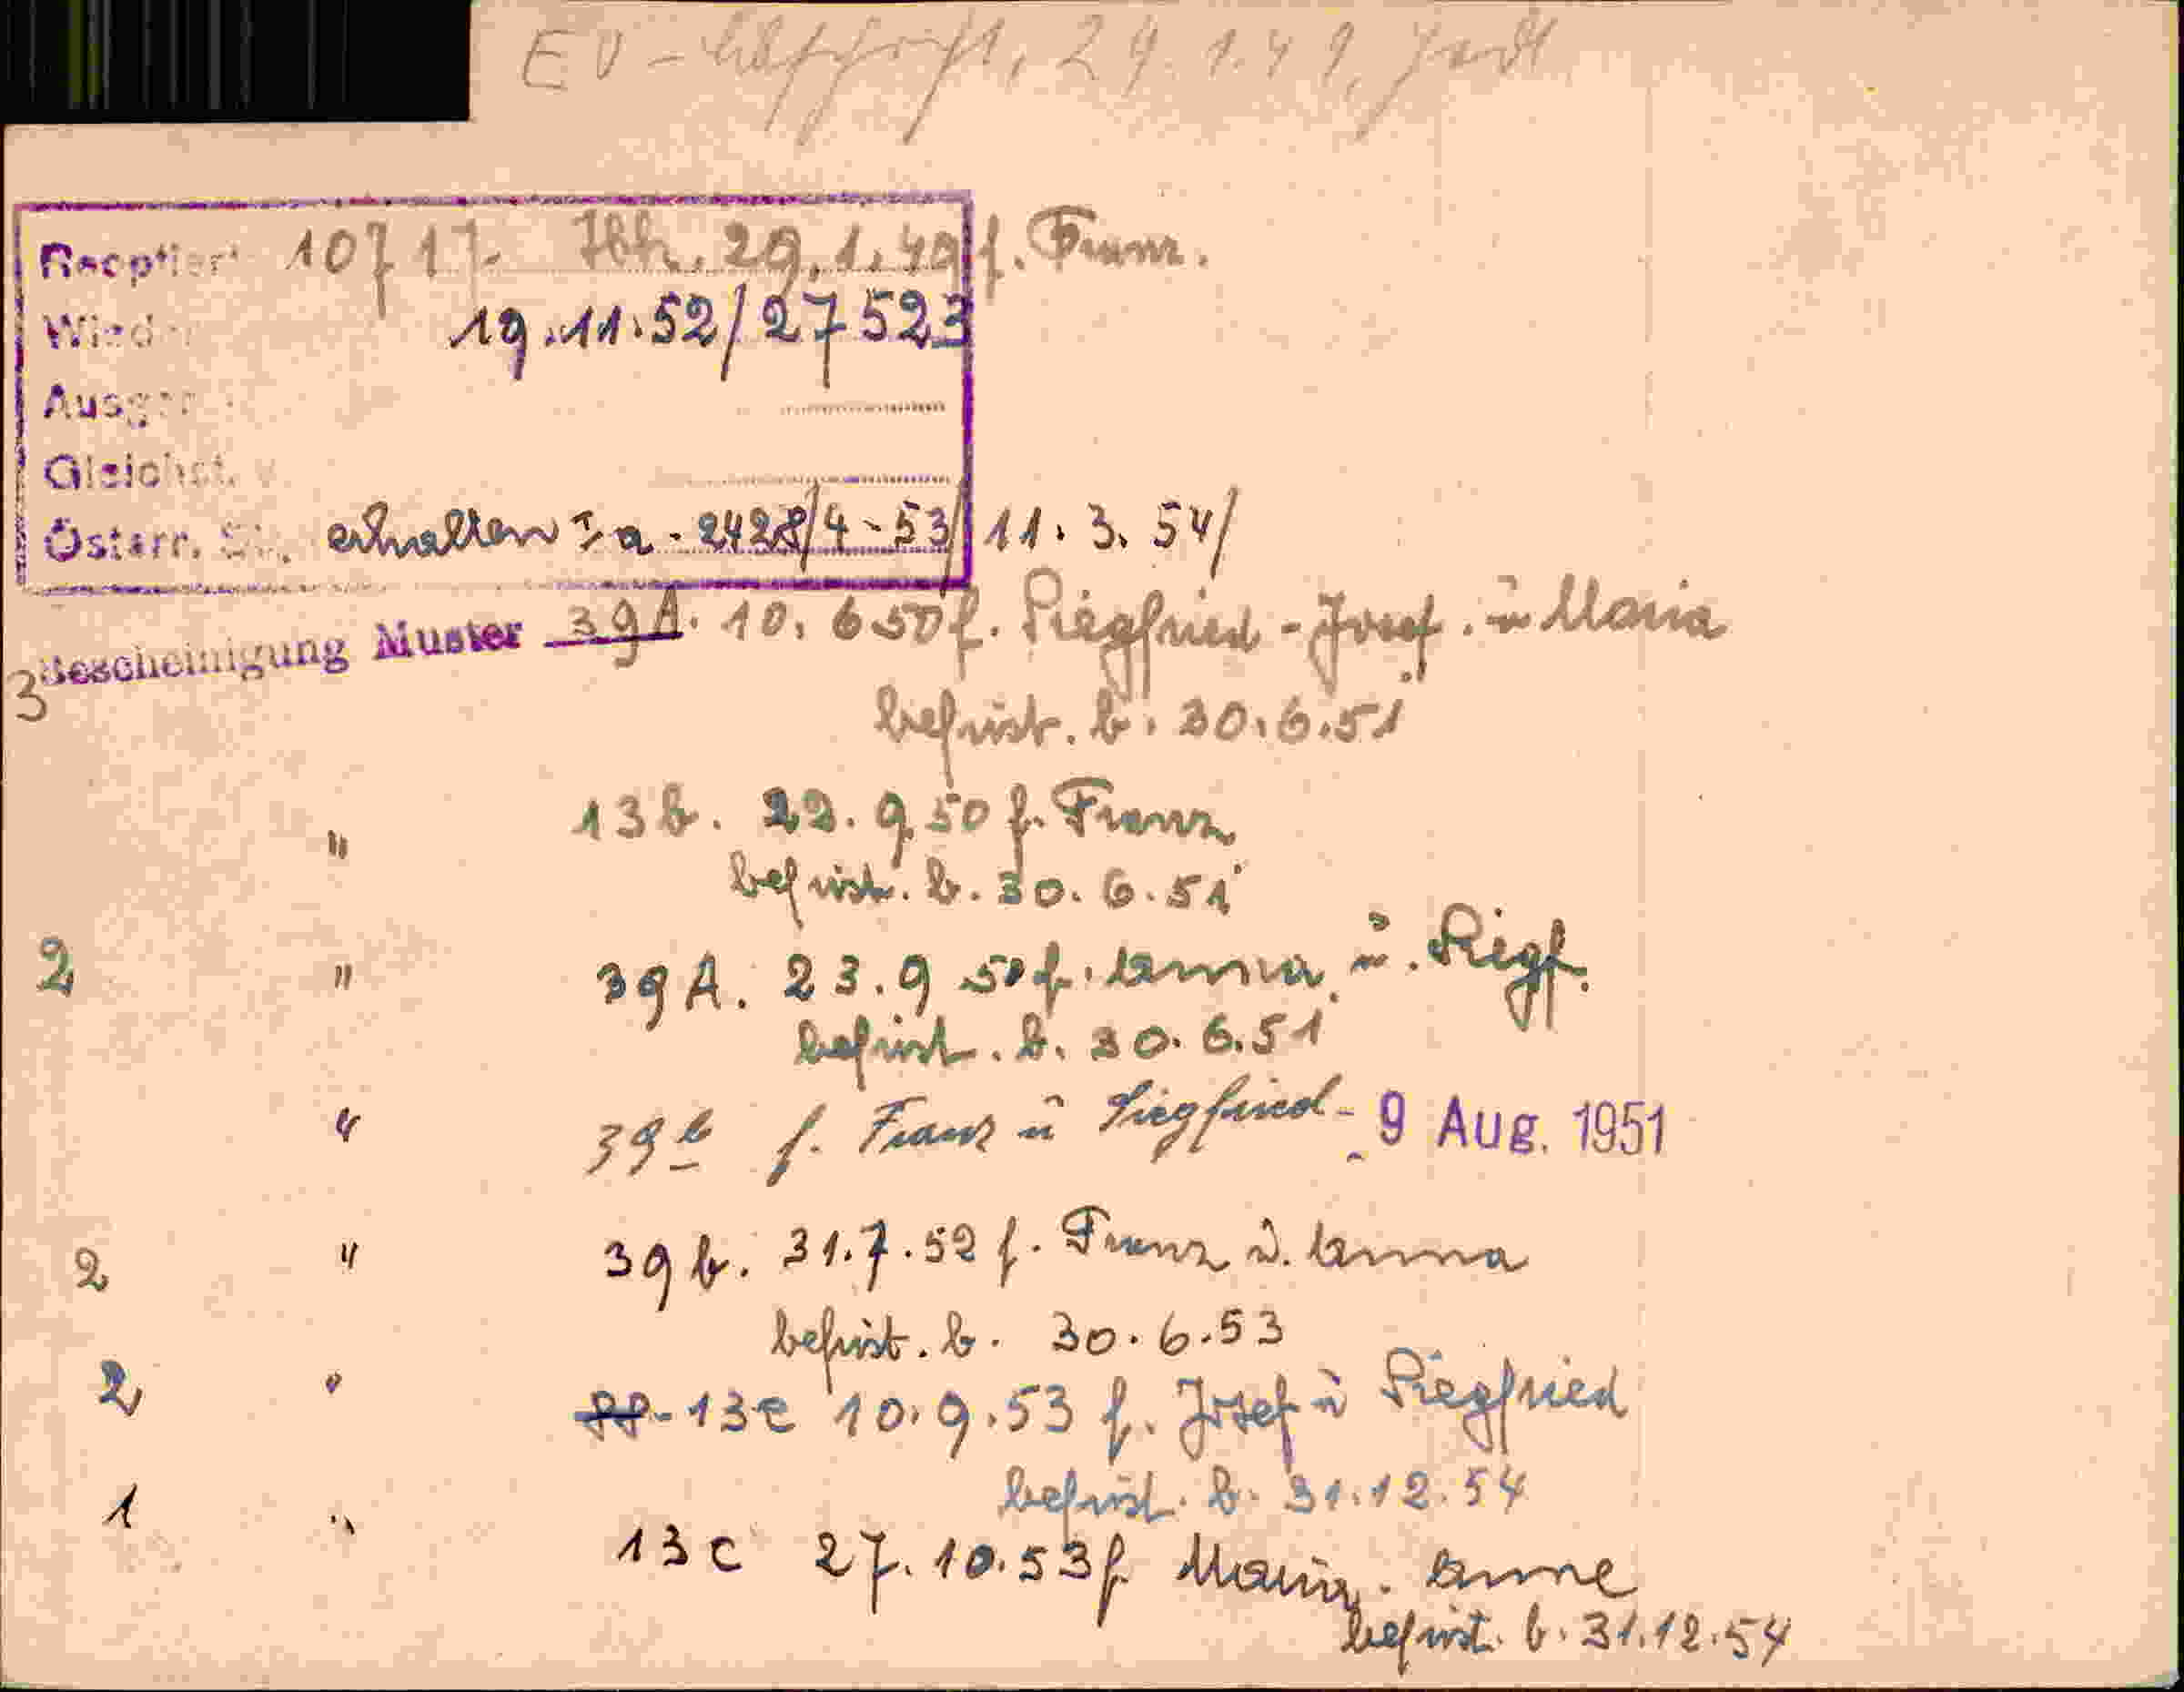 EV - 29.1.49,
Reoptiert 10717 29.1.49 f. Franz.
Wied 19.11.52/27523
Ausge
Gleichst.
Österr. St. erhalten Ia - 2428/4-53/ 11.3.54/
3 Bescheinigung Muster 39A. 10.6.50 f. Siegfried - Josef. u Maria
befrist. b. 30.6.51
" 13b. 22.9.50 f. Franz
befrist. b. 30.6.51
2 " 39A. 23.9 50 f. Anna. u. Siegf.
befrist. b. 30.6.51
" 39b f. Franz u Siegfried - 9 Aug. 1951
2 " 39b. 31.7.52 f. Franz u. Anna
befrist. b. 30.6.53
2 " 13c 10.9.53 f. Josef u Siegfried
befrist. b. 31.12.54
1 " 13c 27.10.53 f Maria. Anne
befrist. b. 31.12.54